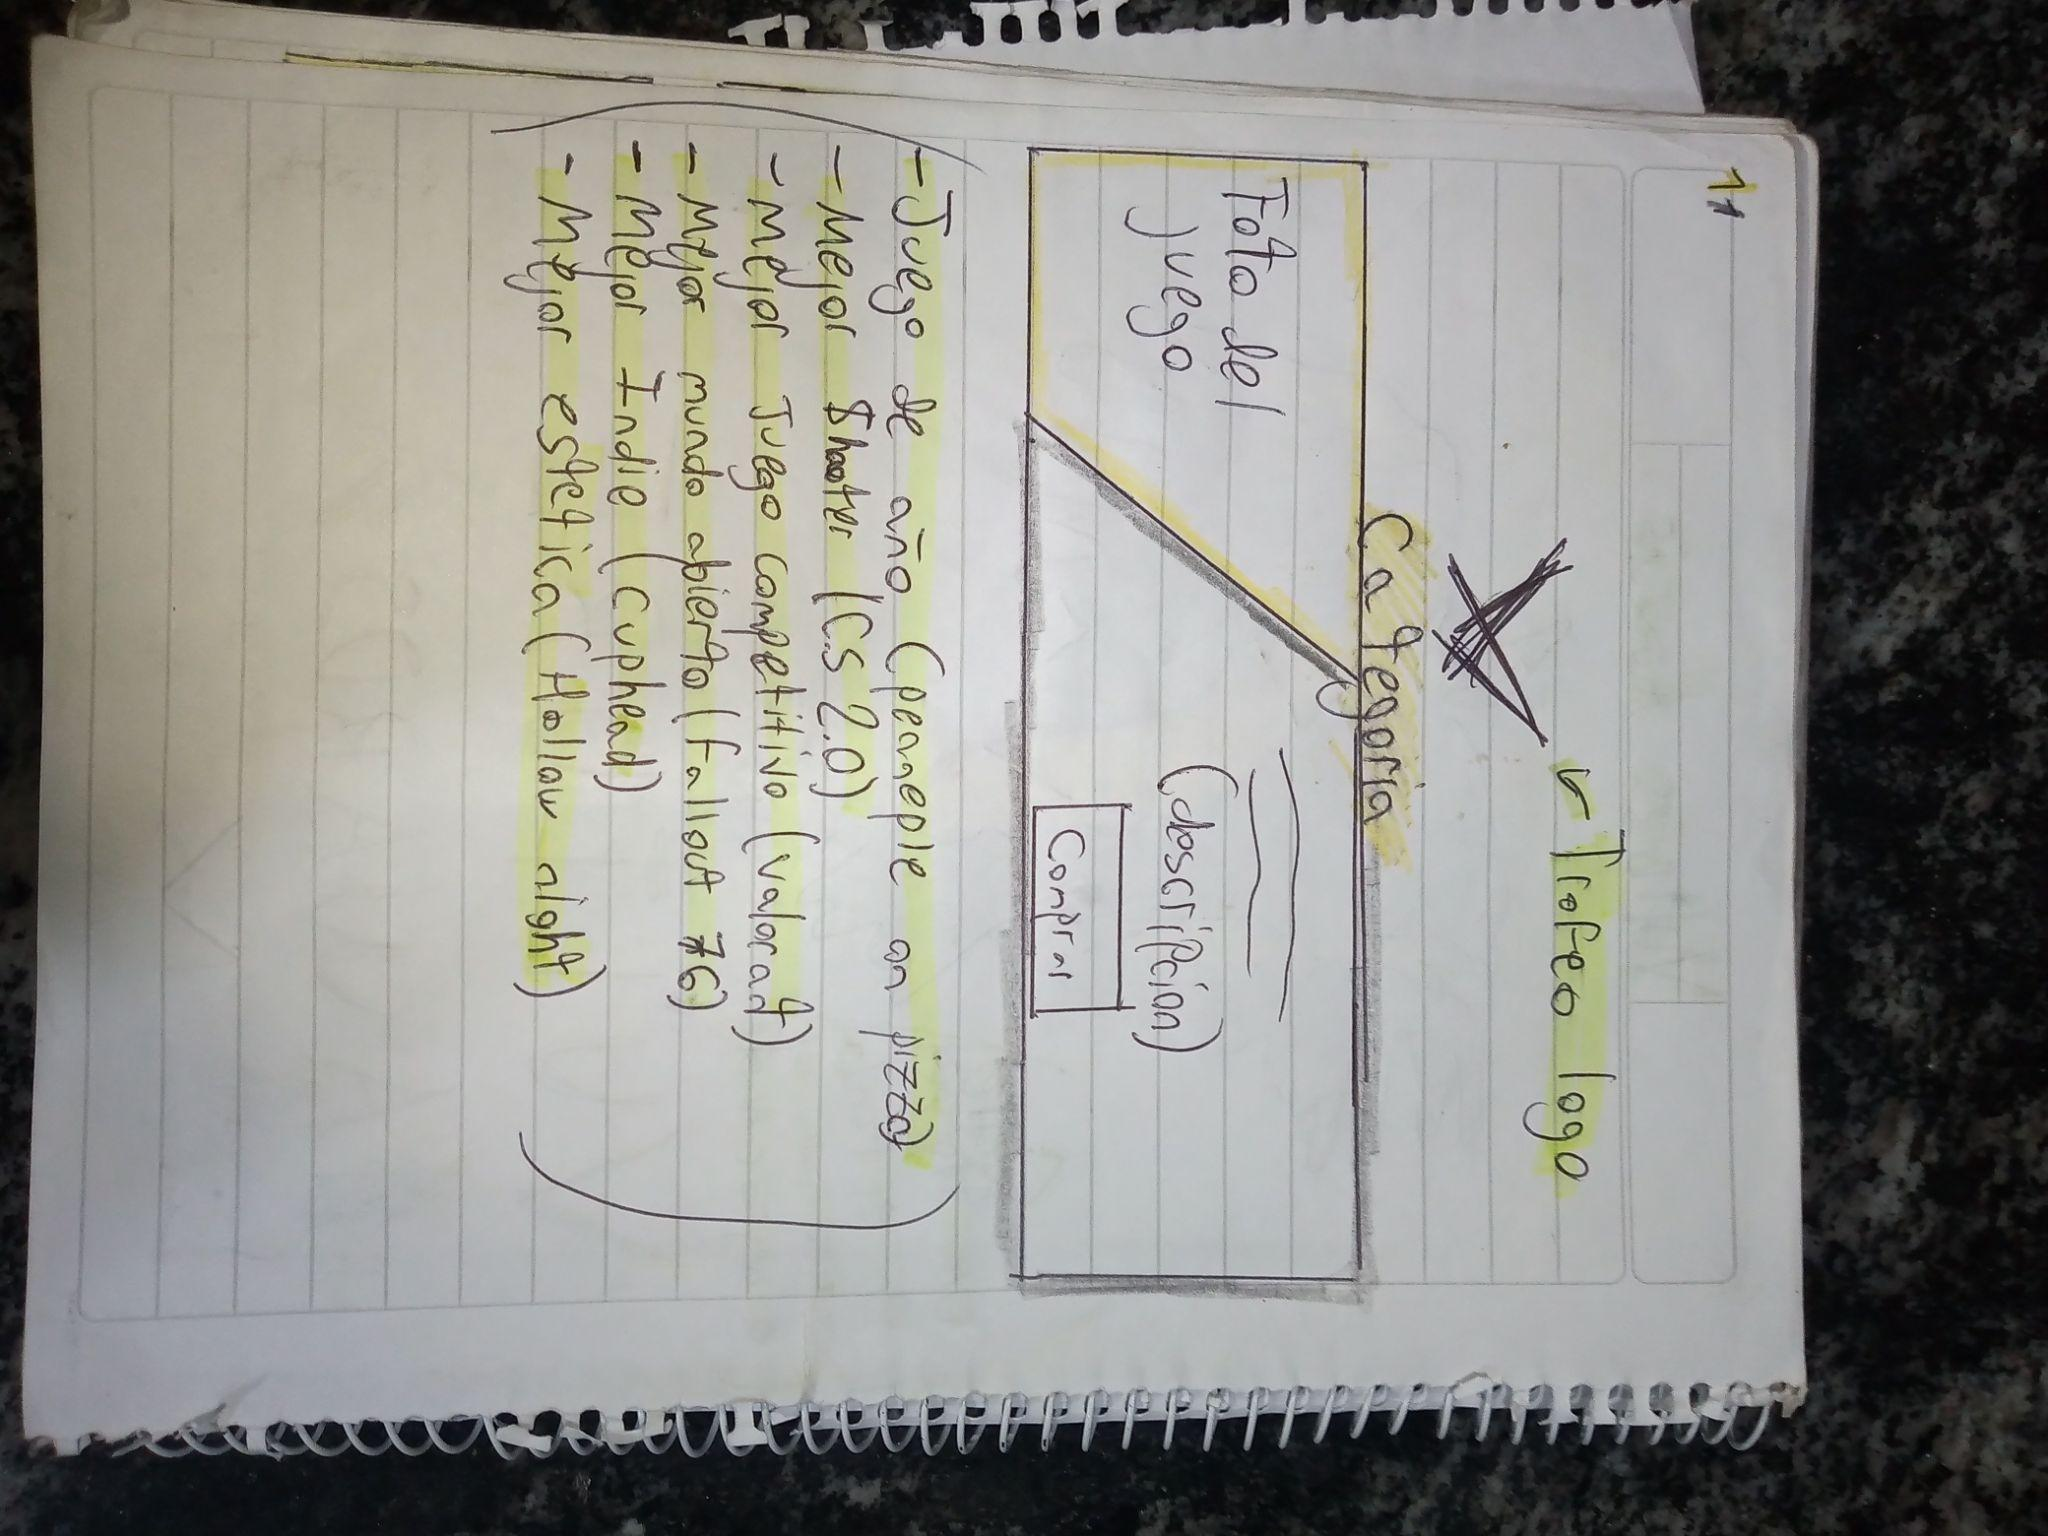 11
Trofeo logo
Categoria
Foto del
juego
(descripcion)
Comprar
- Juego de año (peaneple on pizza)
- Mejor Shooter (CS 2.0)
- Mejor Juego competitivo (valorant)
- Mejor mundo abierto (fallout 76)
- Mejor Indie (cuphead)
- Mejor estetica (Hollow night)